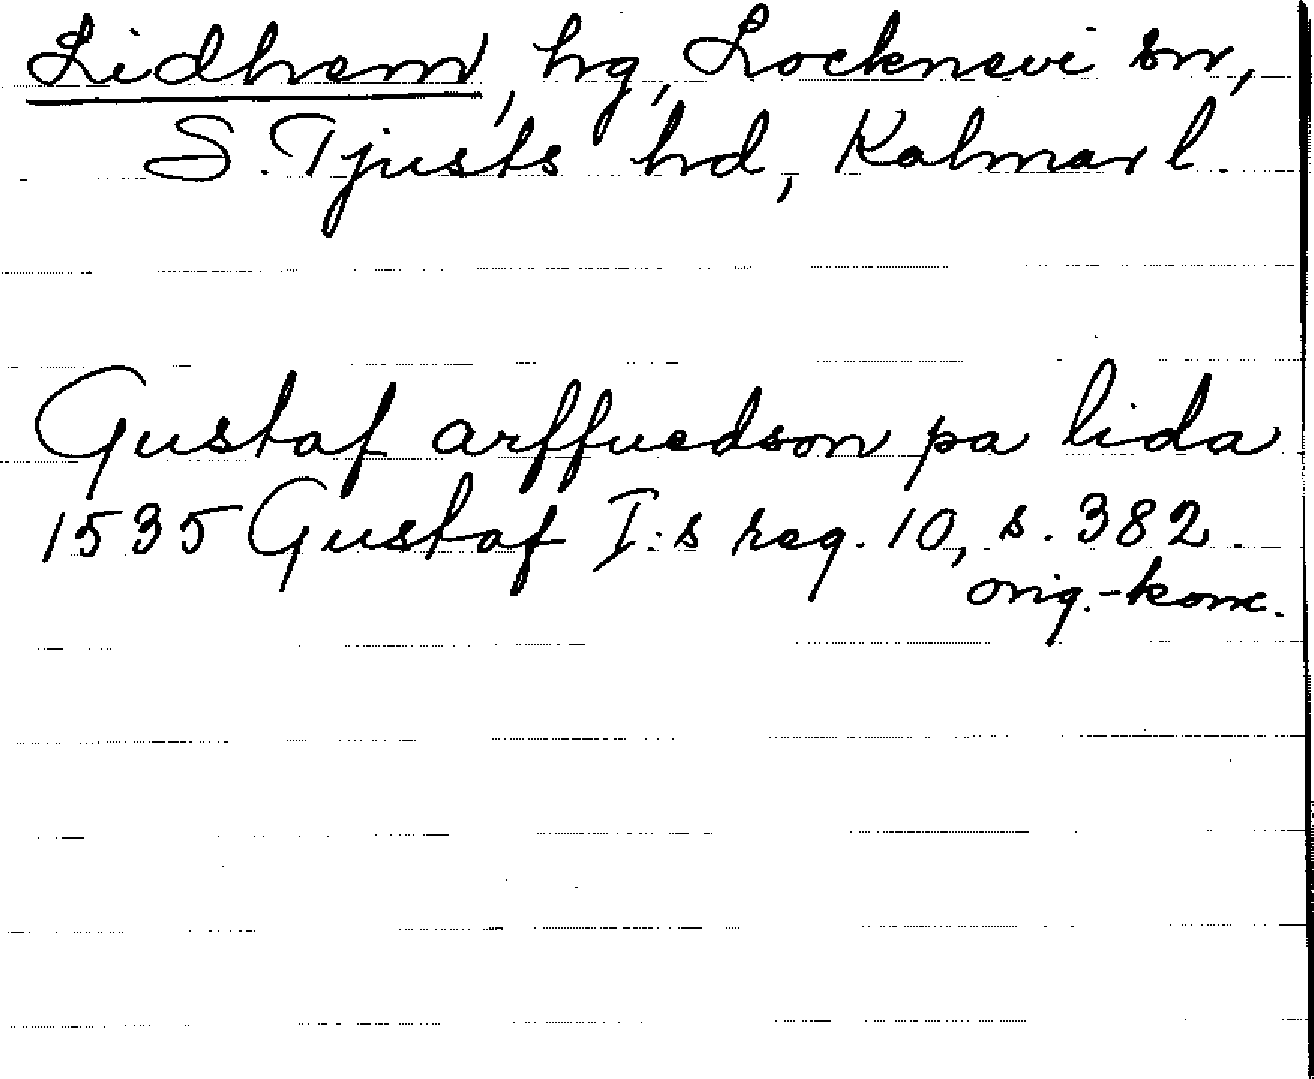 Lidhem, hg, Locknevi sn,
S. Tjusts hd, Kalmar l.
Gustaf arffuedson pa lida
1535 Gustaf I:s reg. 10, s. 382.
orig.-konc.